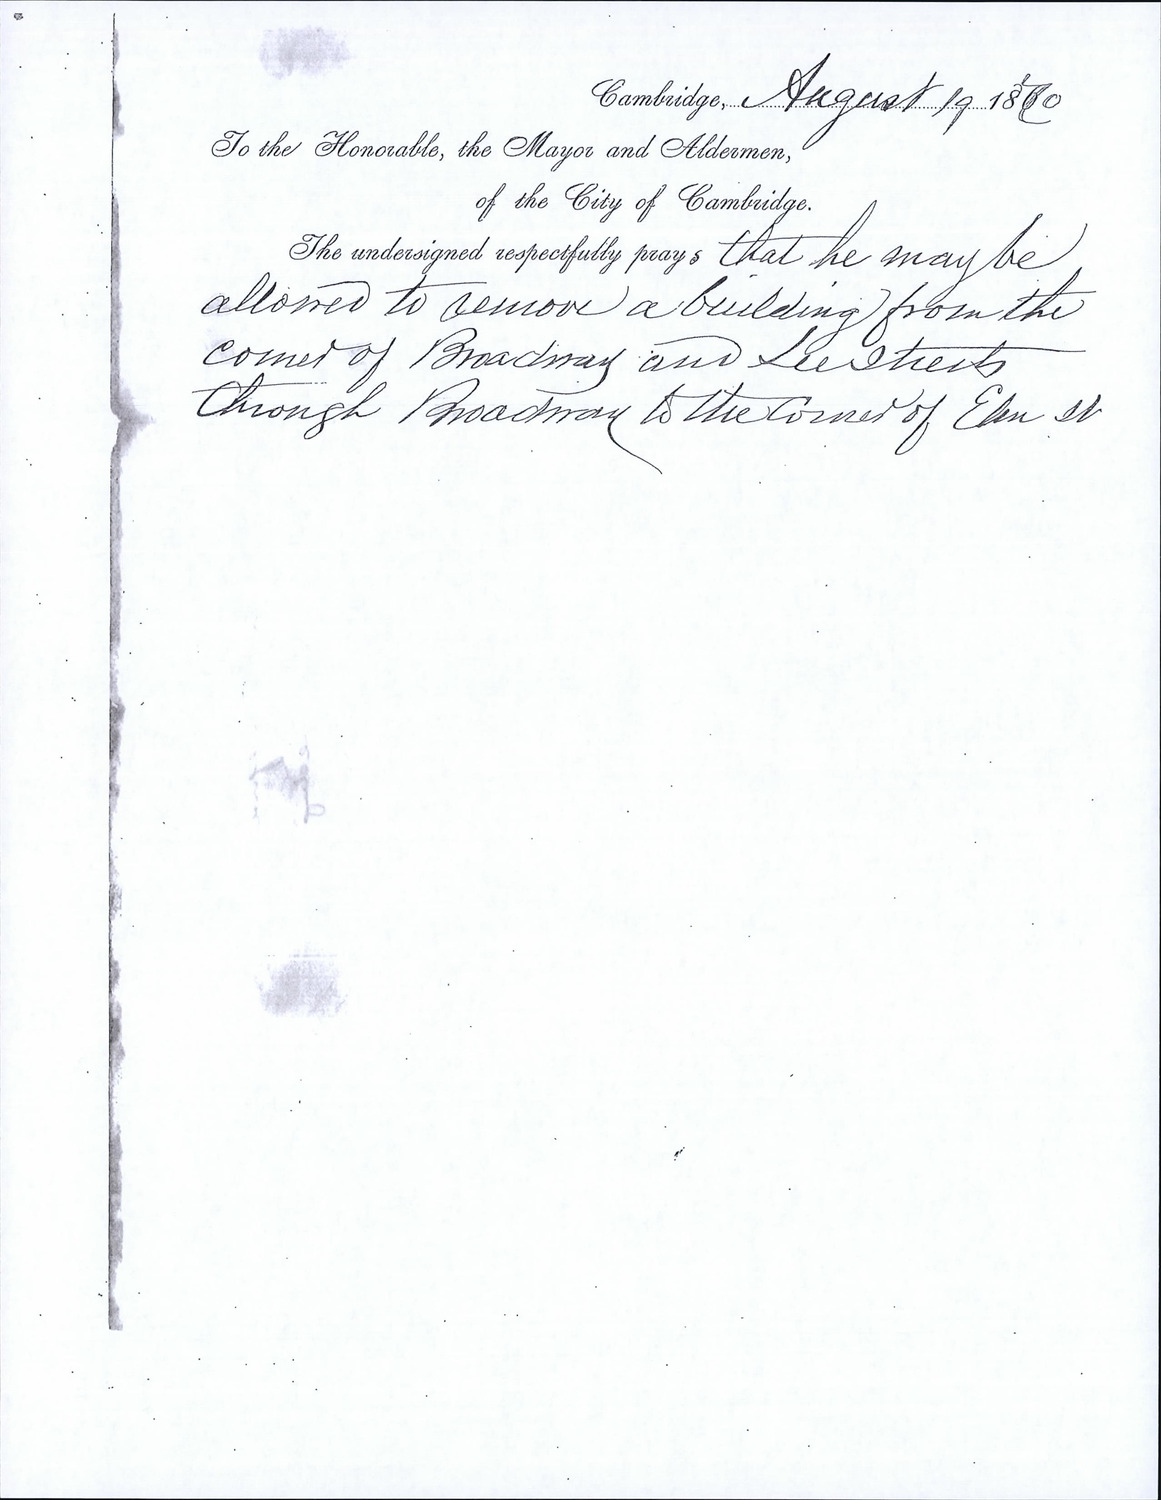 Cambridge, August 19 1870
To the Honorable, the Mayor and Aldermen,
of the City of Cambridge.
The undersigned respectfully prays that he may be
allowed to remove a building from the
corner of Broadway and Lee Streets
through Broadway to the corner of Elm St